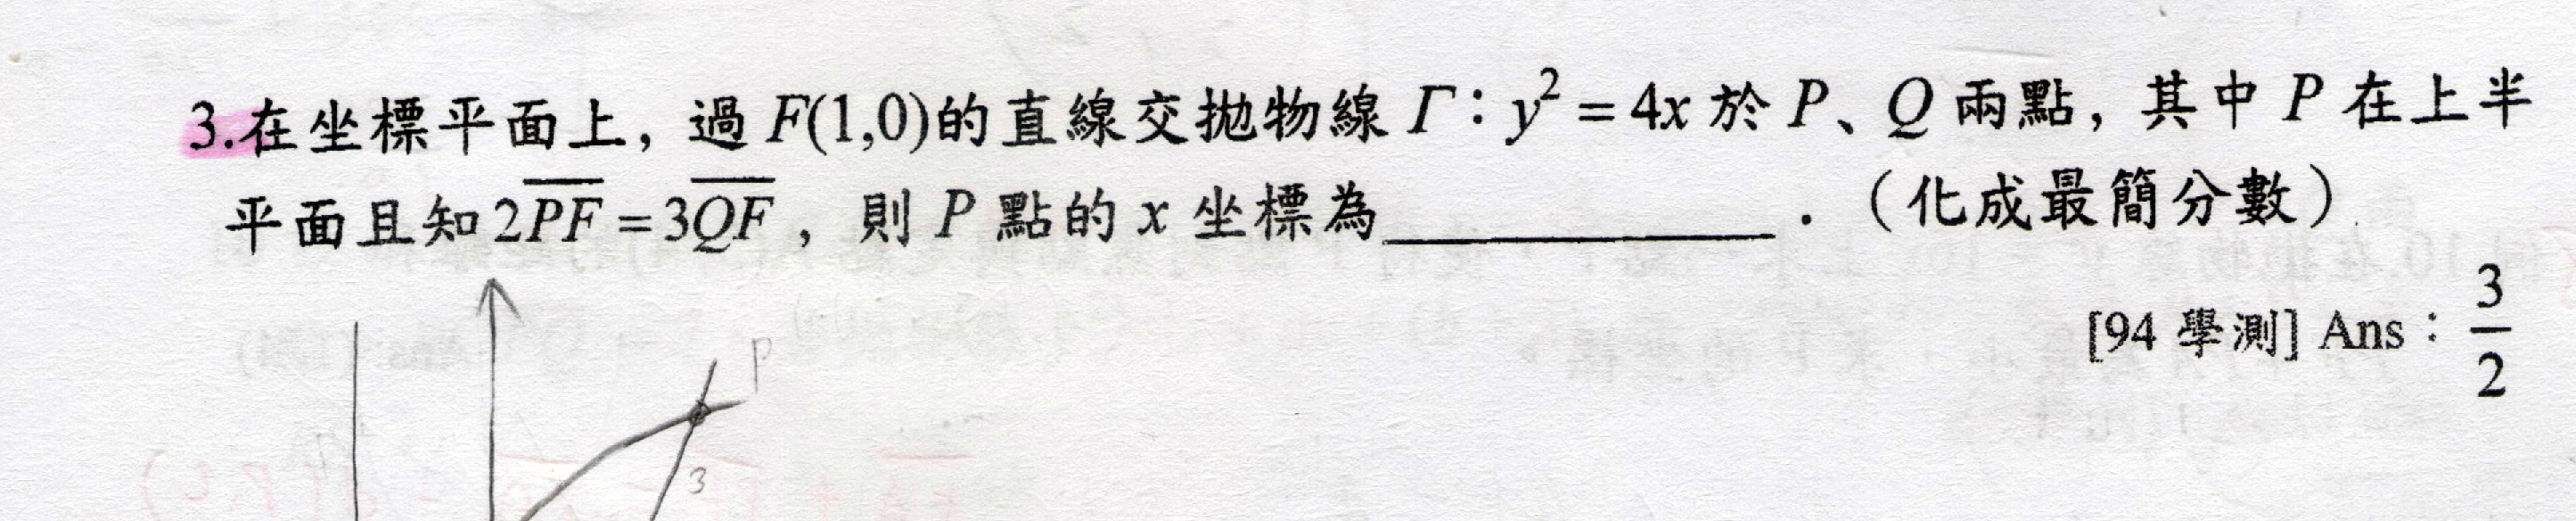 3.在坐標平面上，過 F(1,0)的直線交拋物線 Γ：y² = 4x 於 P、Q 兩點，其中 P 在上半
平面且知 2\overline{PF} = 3\overline{QF}，則 P 點的 x 坐標為____________．（化成最簡分數）
[94 學測] Ans：3/2
P
3